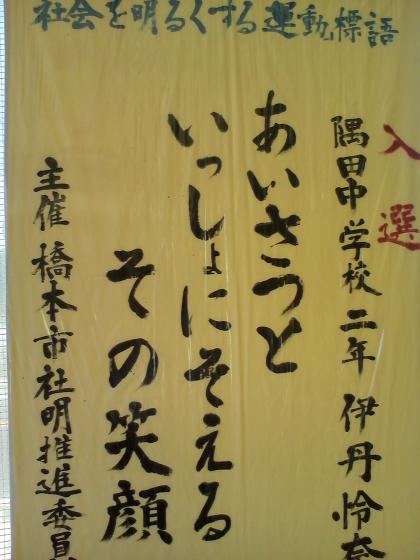 社会を明るくする運動標語
入選
隅田中学校二年伊丹怜奈
あいさつと
いっしょにそえる
その笑顔
主催橋本市社明推進委員